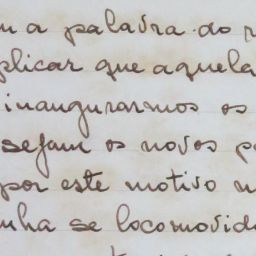 a palavra do
plicar que aquela
inaugurarmos os
sejam os novos
por este motivo
nha se locomovid